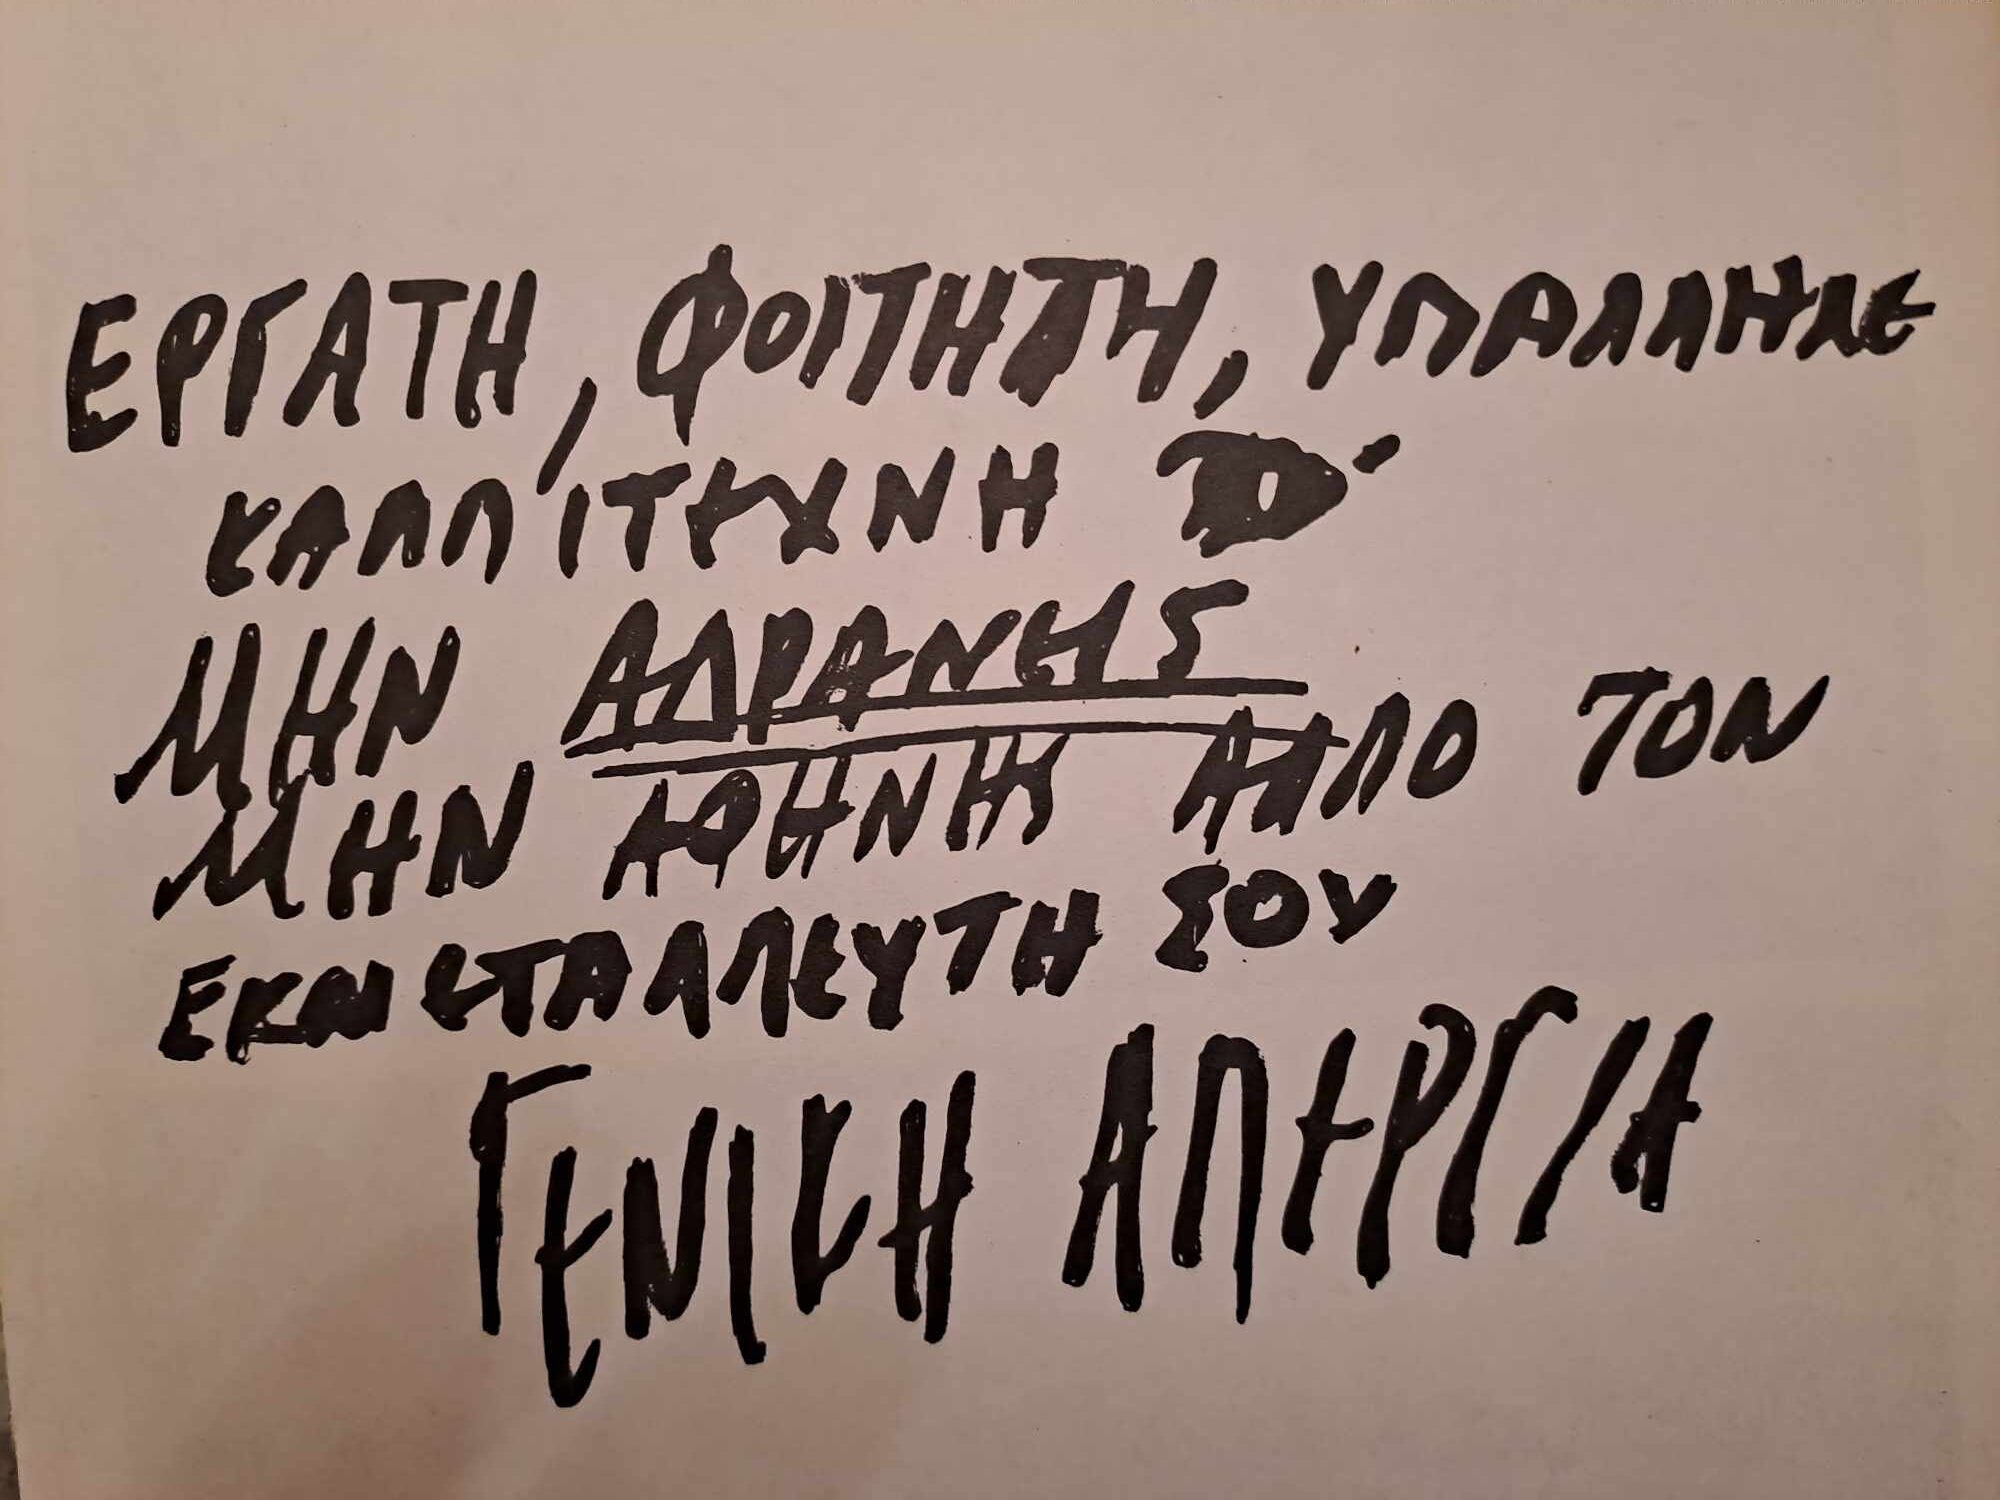 ΕΡΓΑΤΗ, ΦΟΙΤΗΤΗ, ΥΠΑΛΛΗΛΕ
ΚΑΛΛΙΤΕΧΝΗ
ΜΗΝ ΑΔΡΑΝΕΙΣ
ΜΗΝ ΑΠΟ ΤΟΝ
ΕΚΜΕΤΑΛΛΕΥΤΗ ΣΟΥ
ΓΕΝΙΚΗ ΑΠΕΡΓΙΑ